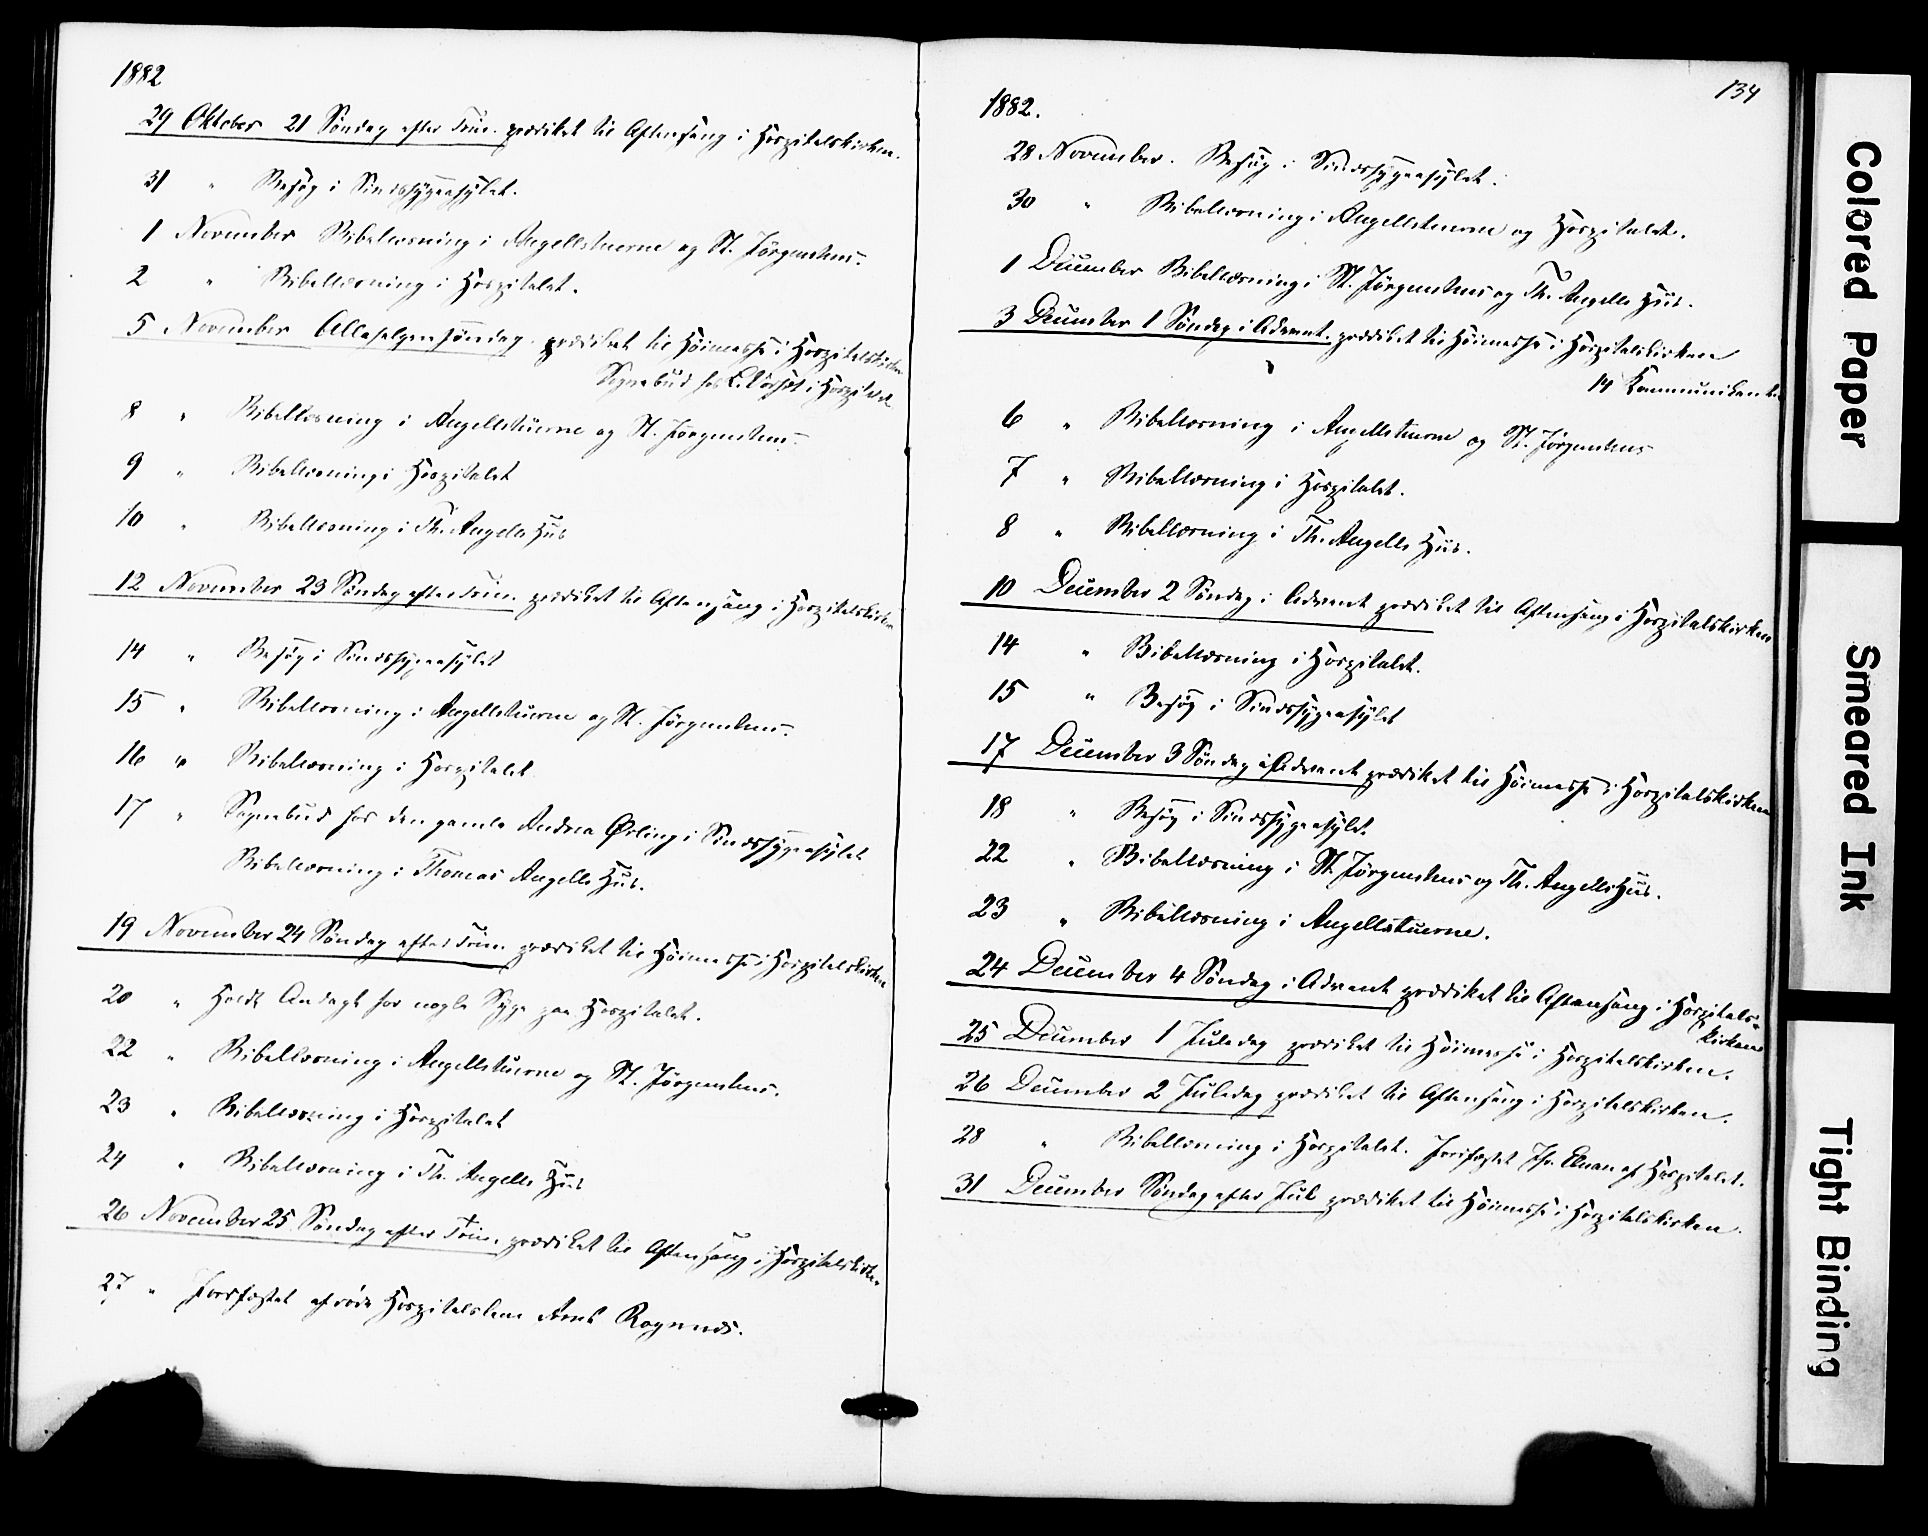 1882
29 Oktober 21 Søndag efter Trin. prædiket til Aftensang i Hospitalskirken.
31 " Besøg i Sindssygeasylet.
1 November Bibellæsning i Angellstuerne og St. Jørgenshus.
2 " Bibellæsning i Hospitalet.
5 November Allehelgensøndag. prædiket til Høimesse i Hospitalskirken
Sognebud hos i Hospitalet
8 " Bibellæsning i Angellstuerne og St. Jørgenshus.
9 " Bibellæsning i Hospitalet
10 " Bibellæsning i Th. Angells Hus
12 November 23 Søndag efter Trin. prædiket til Aftensang i Hospitalskirken
14 " Besøg i Sindssygeasylet
15 " Bibellæsning i Angellstuerne og St. Jørgenshus.
16 " Bibellæsning i Hospitalet
17 " Sognebud hos den gamle Andrea Ørling i Sindssygeasylet
Bibellæsning i Thomas Angells Hus.
19 November 24 Søndag efter Trin. prædiket til Høimesse i Hospitalskirken
20 " Holdt Andagt for nogle Syge paa Hospitalet.
22 " Bibellæsning i Angellstuerne og St. Jørgenshus.
23 " Bibellæsning i Hospitalet
24 " Bibellæsning i Th. Angells Hus
26 November 25 Søndag efter Trin. prædiket til Aftensang i Hospitalskirken
27 " Jordfæstet afdøde Hospitalslem Arnt Rognnæs.
134
1882.
28 November. Besøg i Sindssygeasylet.
30 " Bibellæsning i Angellstuerne og Hospitalet.
1 December Bibellæsning i St. Jørgenshus og Th. Angells Hus.
3 December 1 Søndag i Advent. prædiket til Høimesse i Hospitalskirken
14 Kommunikanter
6 " Bibellæsning i Angellstuerne og St. Jørgenshus
7 " Bibellæsning i Hospitalet.
8 " Bibellæsning i Th. Angells Hus.
10 December 2 Søndag i Advent prædiket til Aftensang i Hospitalskirken
14 " Bibellæsning i Hospitalet.
15 " Besøg i Sindssygeasylet
17 December 3 Søndag i Advent prædiket til Høimesse i Hospitalskirken
18 " Besøg i Sindssygeasylet.
22 " Bibellæsning i St. Jørgenshus og Th. Angells Hus.
23 " Bibellæsning i Angellstuerne.
24 December 4 Søndag i Advent prædiket til Aftensang i Hospitals-
kirken
25 December 1 Juledag prædiket til Høimesse i Hospitalskirken.
26 December 2 Juledag prædiket til Aftensang i Hospitalskirken.
28 " Bibellæsning i Hospitalet. Jordfæstet af Hospitalet.
31 December Søndag efter Jul prædiket til Høimesse i Hospitalskirken.
Colored Paper
Smeared Ink
Tight Binding